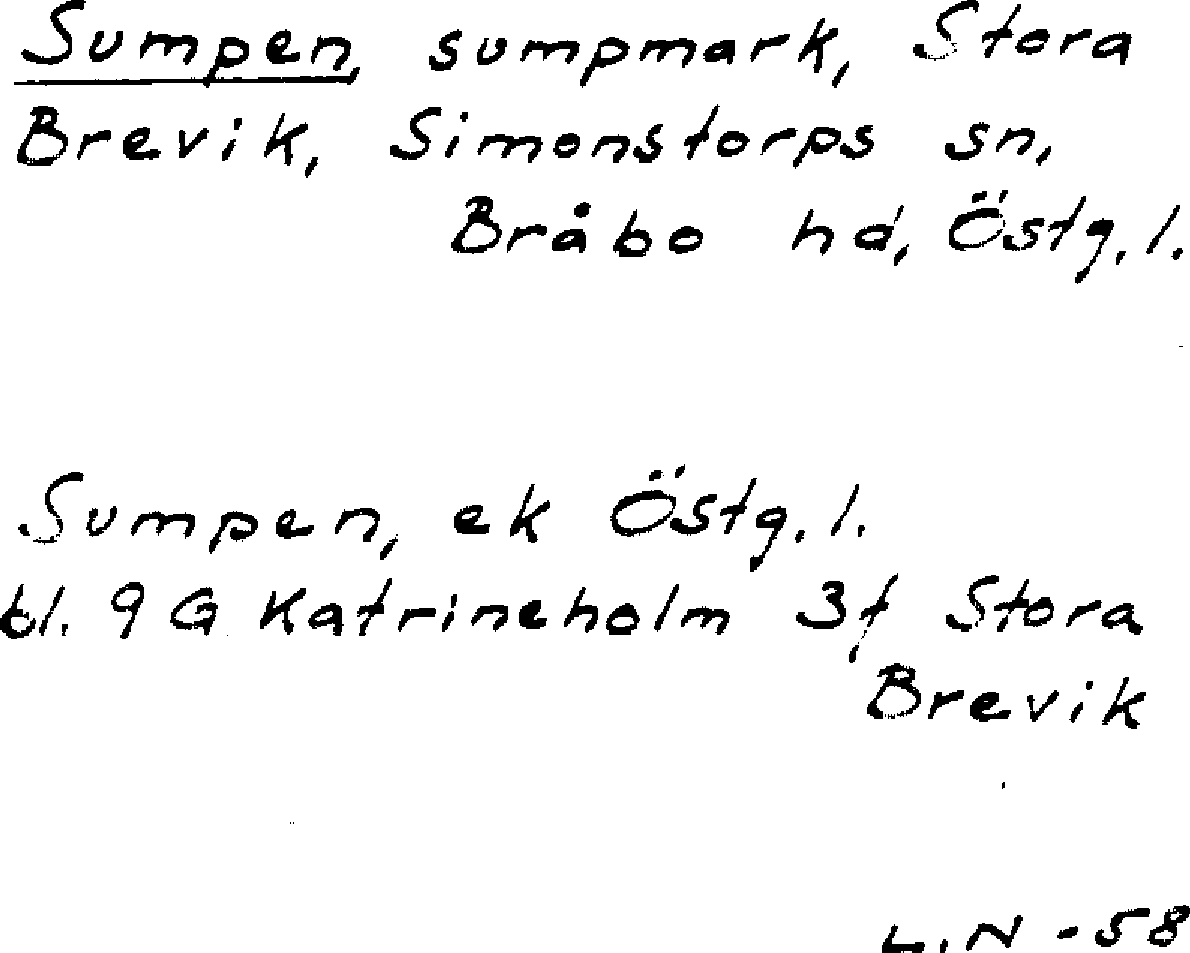 Sumpen, sumpmark, Stora
Brevik, Simonstorps sn,
Bråbo hd, Östg. l.
Sumpen, ek Östg. l.
bl. 9 G Katrineholm 3f Stora
Brevik
L.N - 58